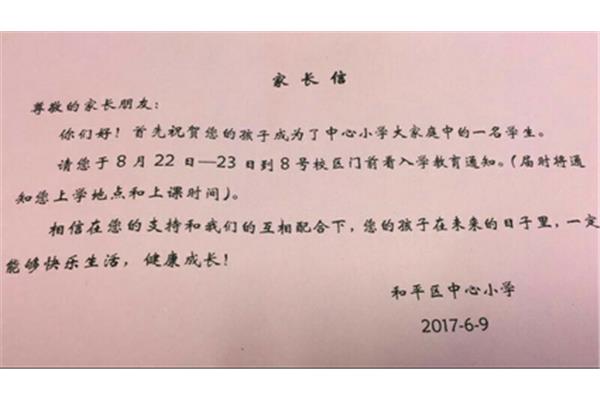 家长信
尊敬的家长朋友：
你们好！首先祝贺您的孩子成为了中心小学大家庭中的一名学生。
请您于8月22日—23日到8号校区门前看入学教育通知。（届时将通
知您上学地点和上课时间）。
相信在您的支持和我们的互相配合下，您的孩子在未来的日子里，一定
能够快乐生活，健康成长！
和平区中心小学
2017-6-9